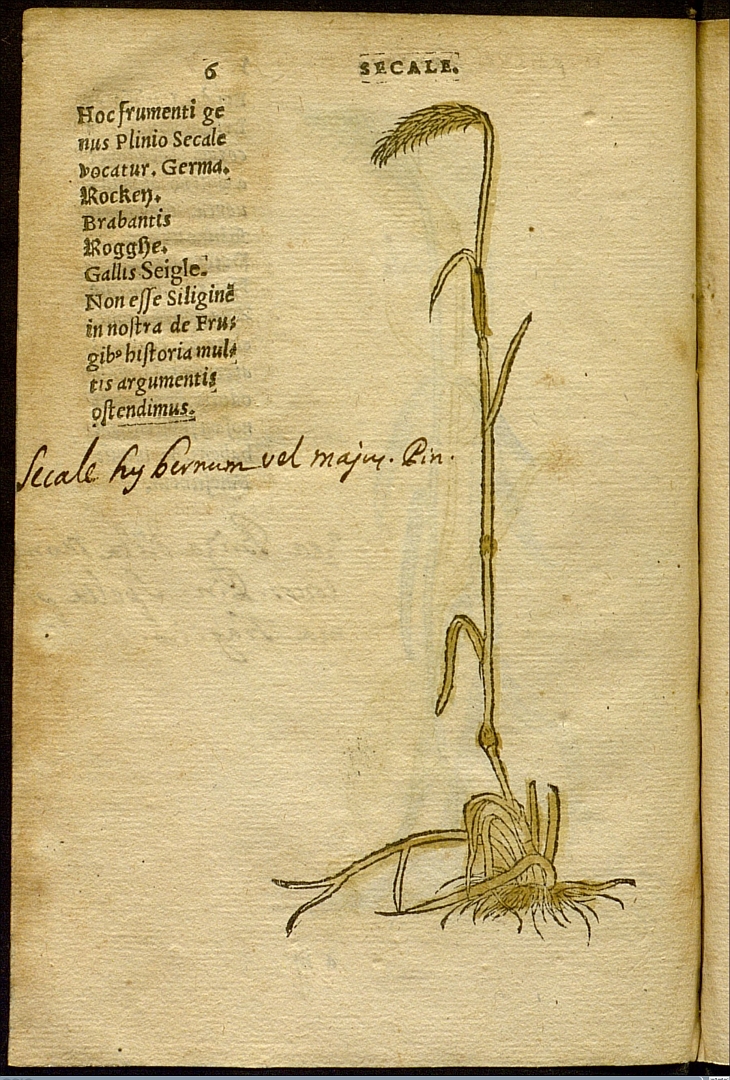 6
SECALE.
Hoc frumenti ge
nus Plinio Secale
vocatur. Germa.
Rocken.
Brabantis
Rogghe.
Gallis Seigle.
Non esse Siliginẽ
in nostra de Fru⸗
gibꝰ historia mul⸗
tis argumentis
ostendimus.
Secale hybernum vel majus. Pin.